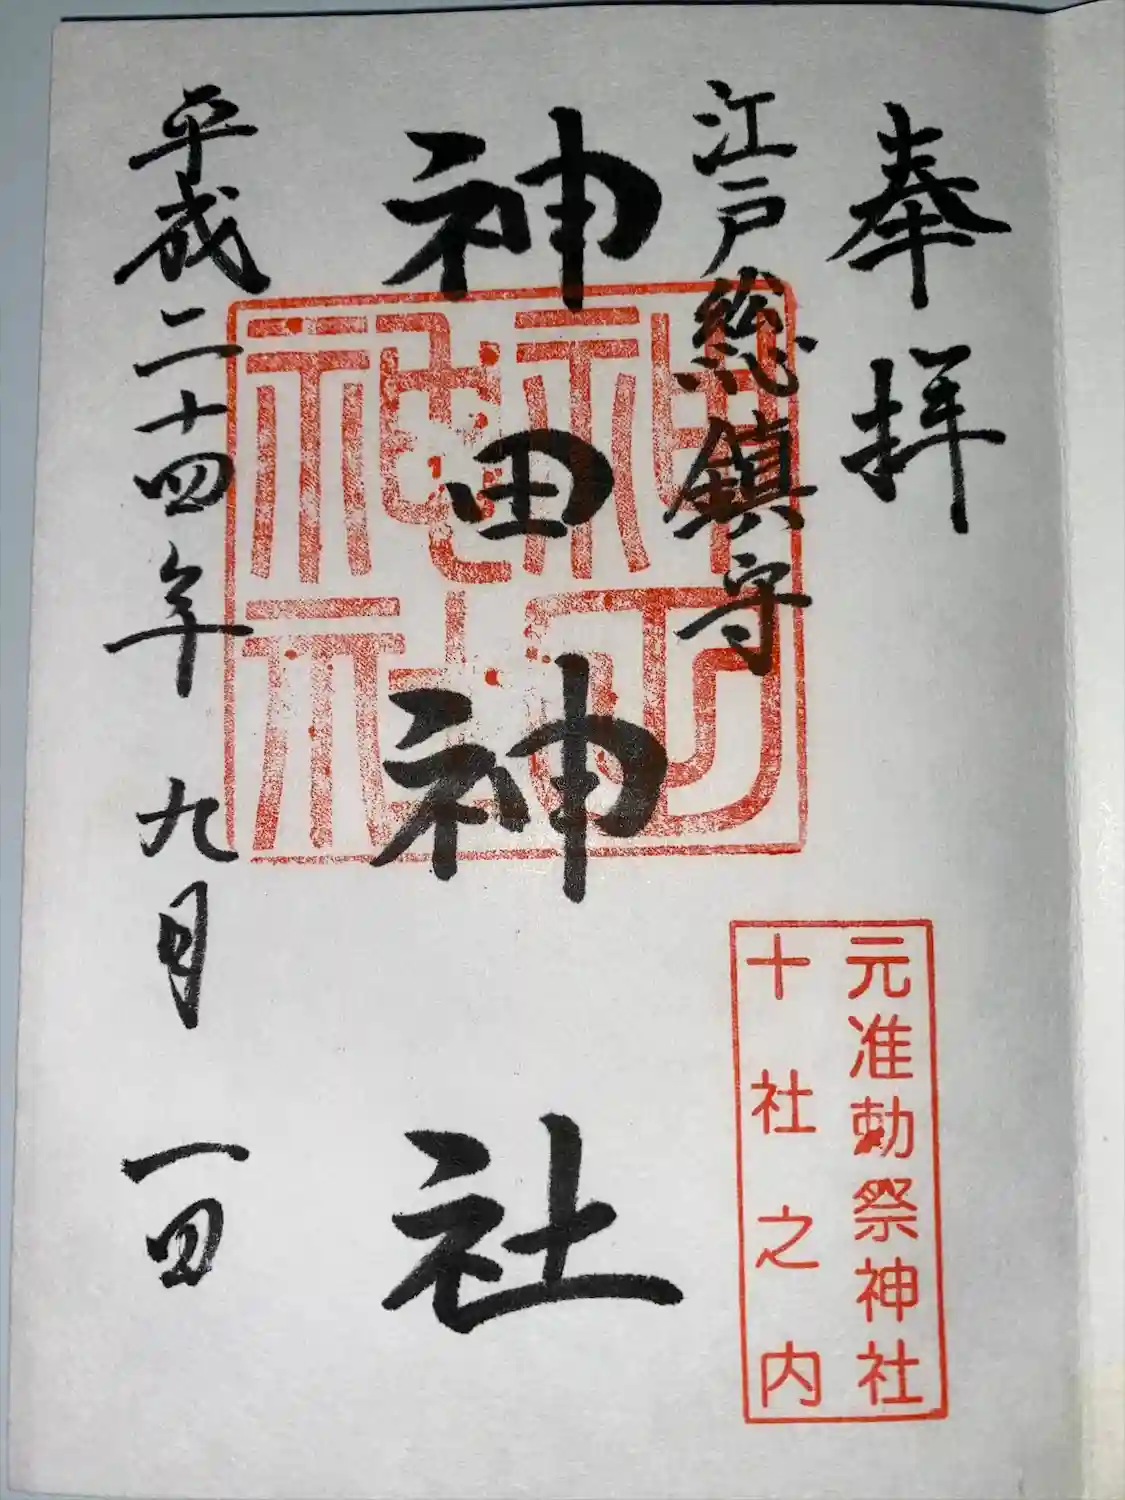 奉拝
江戸総鎮守
神田神社
平成二十四年 九月 一日
神田神社
元准勅祭神社
十社之内